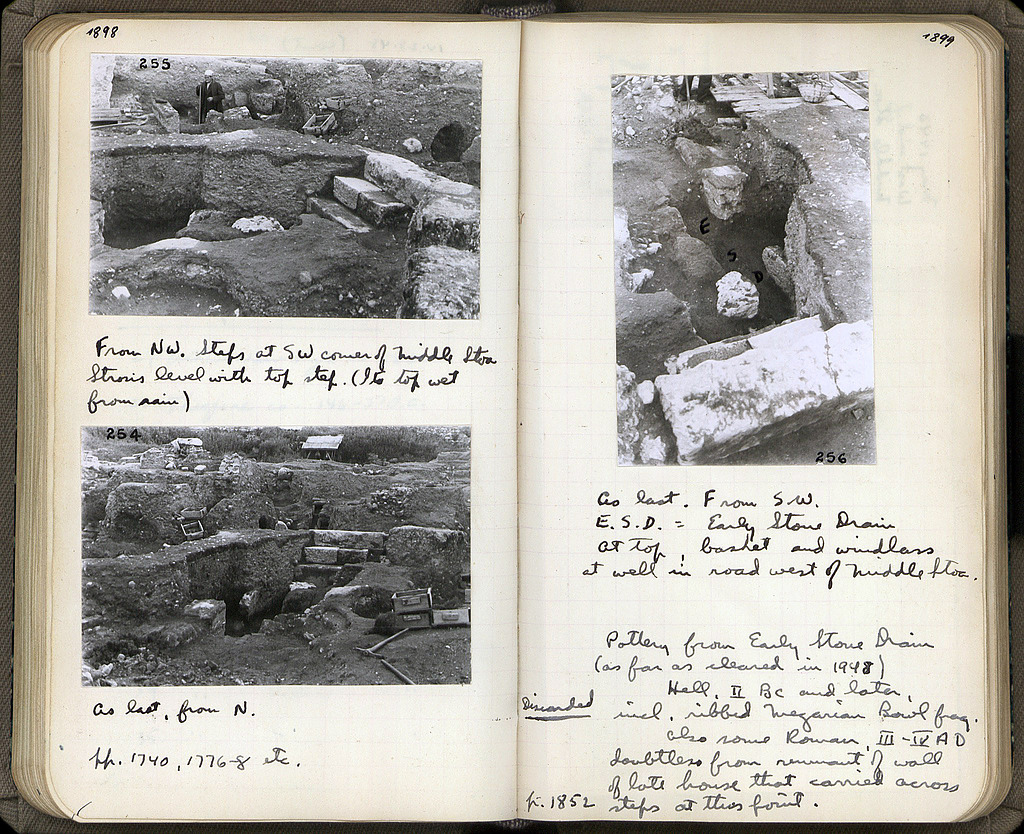 1898
255
From NW. Steps at SW corner of Middle Stoa
Strosis level with top step. (Its top wet
from rain)
254
As last, from N.
pp. 1740, 1776-8 etc.
1899
E
S
D
256
As last. From S.W.
E.S.D. = Early Stone Drain
At top, basket and windlass
at well in road west of Middle Stoa.
Pottery from Early Stone Drain
(as far as cleared in 1948)
Hell. II BC and later,
Discarded
incl. ribbed Megarian Bowl frag.
also some Roman, III-IV AD
doubtless from remnant of wall
of late house that carried across
p. 1852 steps at this point.